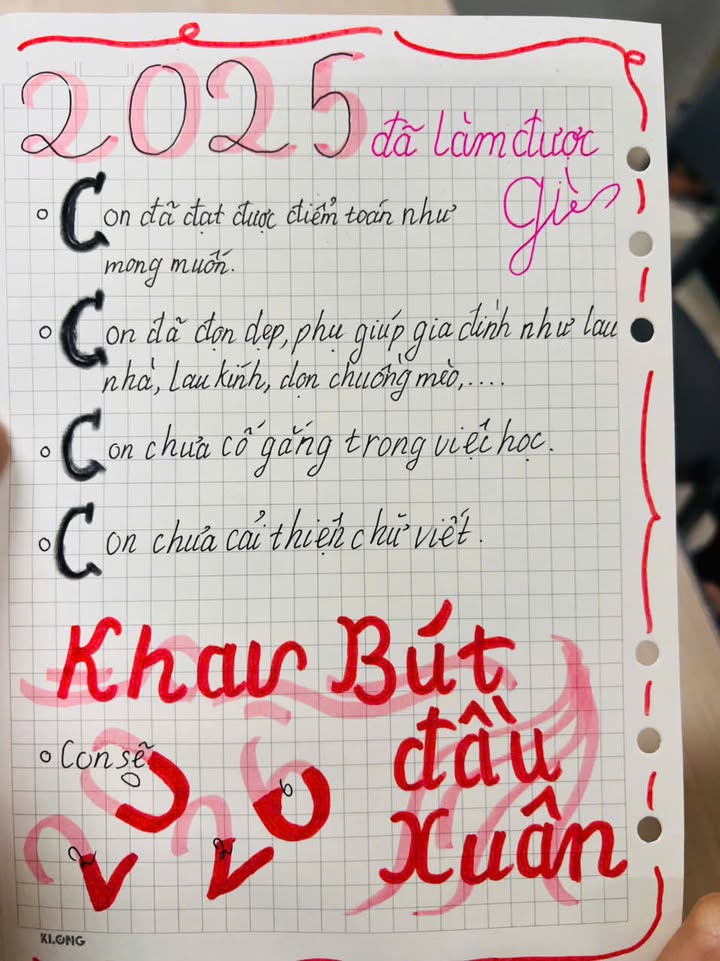 2025 đã làm được
gì
Con đã đạt được điểm toán như
mong muốn.
Con đã dọn dẹp, phụ giúp gia đình như lau
nhà, lau kính, dọn chuồng mèo,....
Con chưa cố gắng trong việc học.
Con chưa cải thiện chữ viết.
Khai Bút
đầu
Xuân
Con sẽ
2026
KLONG